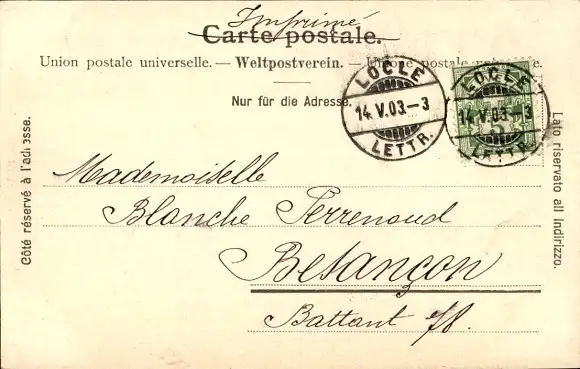 Imprimé
Carte postale.
Union postale universelle. — Weltpostverein. — Unione postale e.
Nur für die Adresse.
LOCLE
14.V.03.—3
LETTR.
LOCLE
14.V.03.—3
LETTR.
5
Côté réservé à l'adresse.
Lato riservato all indirizzo.
Mademoiselle
Blanche Perrenoud
Besançon
Battant